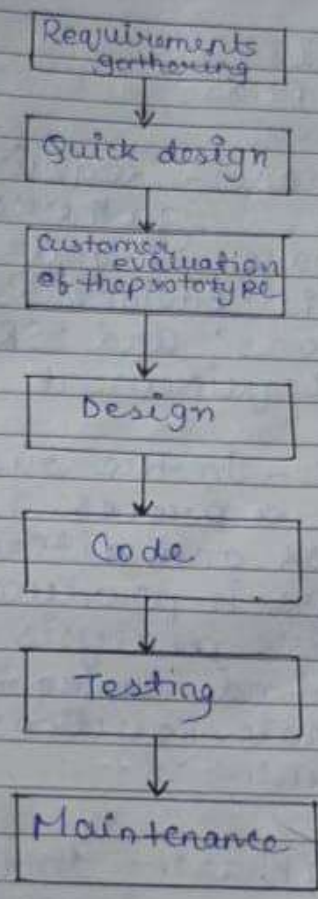 Requirements
gathering
Quick design
Customer
evaluation
of the prototype
Design
Code
Testing
Maintenance